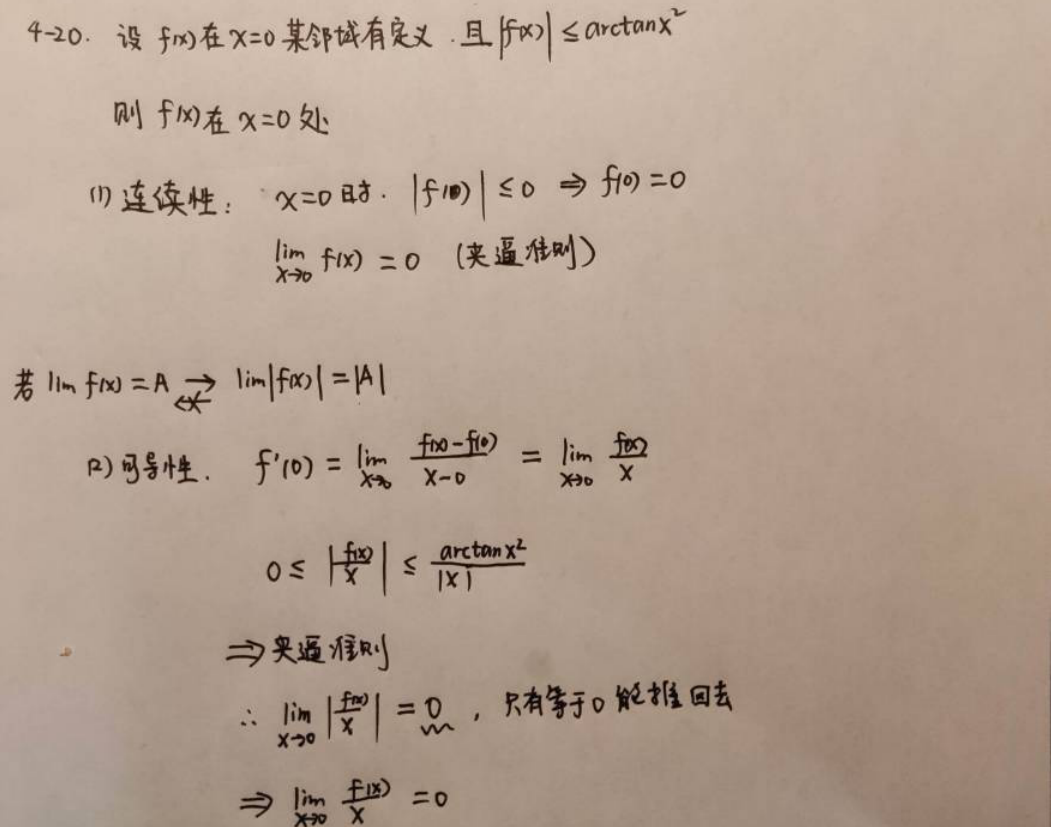 4-20. 设 f(x)在 x=0 某邻域有定义.且|f(x)| ≤ arctanx²
则 f(x)在 x=0 处
(1) 连续性: x=0时. |f(0)| ≤ 0 ⇒ f(0)=0
lim x→0 f(x) = 0 (夹逼准则)
若 lim f(x) = A → lim|f(x)| = |A|
(2) 可导性. f'(0) = lim x→0 (f(x)-f(0))/(x-0) = lim x→0 f(x)/x
0 ≤ |f(x)/x| ≤ arctanx²/|x|
⇒ 夹逼准则
∴ lim x→0 |f(x)/x| = 0, 只有等于0能推回去
⇒ lim x→0 f(x)/x = 0